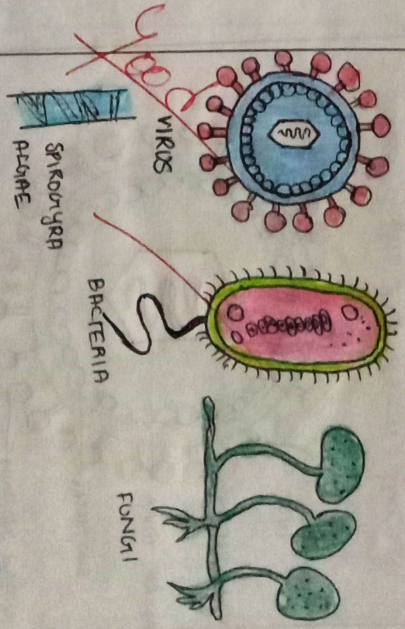 Good
VIRUS
BACTERIA
FUNGI
SPIROGYRA
ALGAE